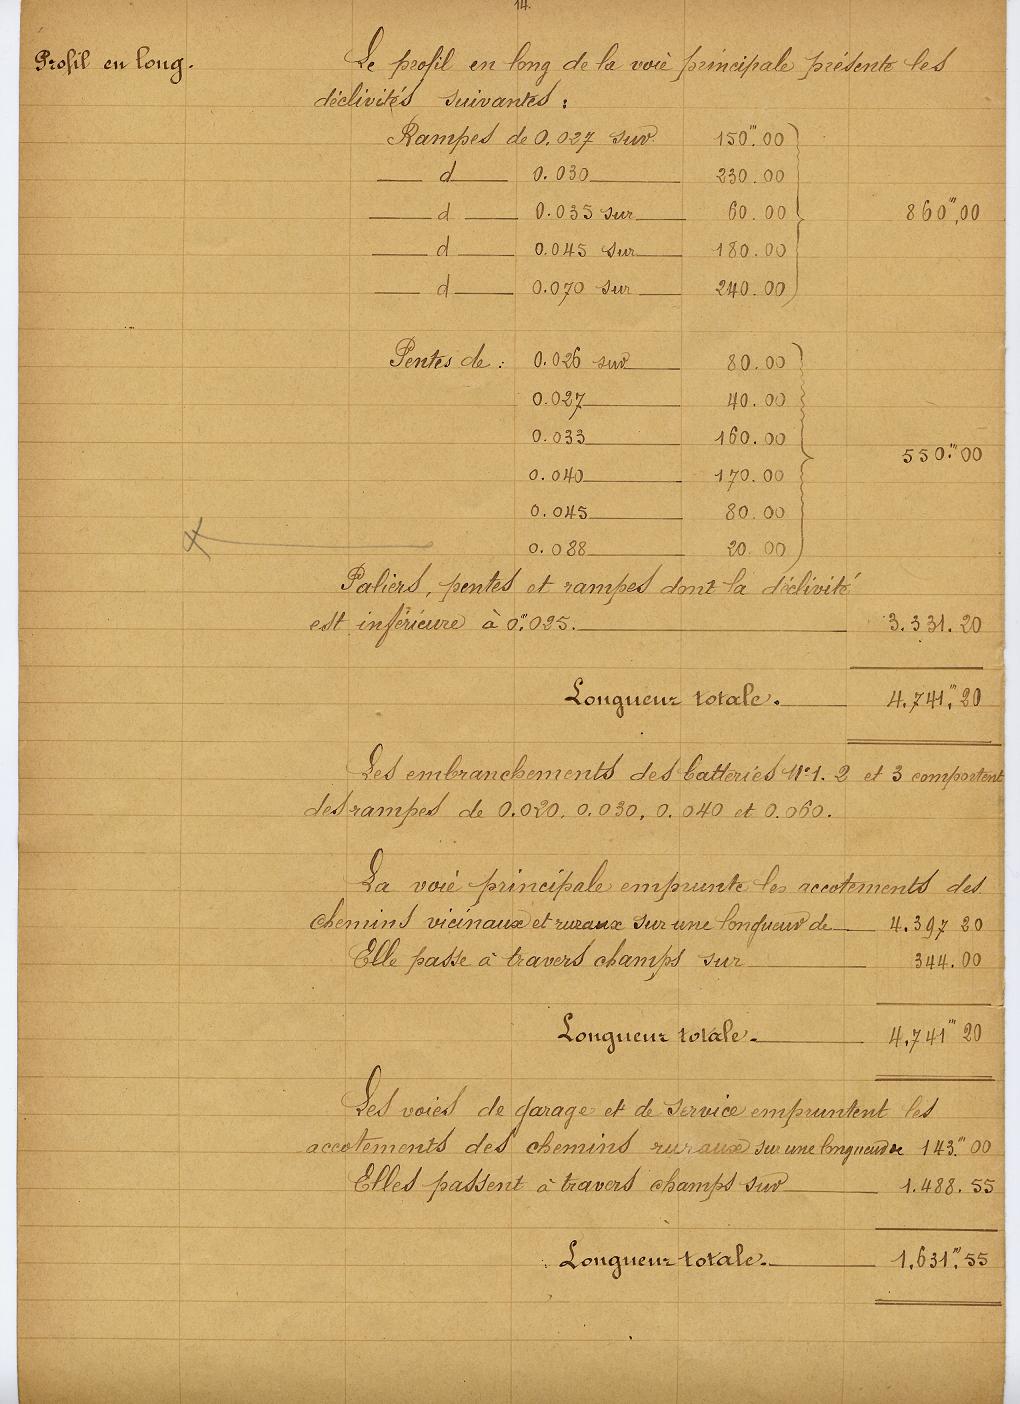 14.
Profil en long. Le profil en long de la voie principale présente les
déclivités suivantes :
Rampes de 0.027 sur 150.ᵐ00
d 0.030 230.00
d 0.035 sur 60.00 860ᵐ,00
d 0.045 sur 180.00
d 0.070 sur 240.00
Pentes de : 0.026 sur 80.00
0.027 40.00
0.033 160.00
550.ᵐ00
0.040 170.00
0.045 80.00
0.088 20.00
Paliers, pentes et rampes dont la déclivité
est inférieure à 0.ᵐ025. 3.331.20
Longueur totale. 4.741.ᵐ20
Les embranchements des batteries Nº 1. 2 et 3 comportent
des rampes de 0.020, 0.030, 0.040 et 0.060.
La voie principale emprunte les accotements des
chemins vicinaux et ruraux sur une longueur de 4.397 20
Elle passe à travers champs sur 344.00
Longueur totale. 4.741ᵐ20
Les voies de garage et de service empruntent les
accotements des chemins ruraux sur une longueur de 143.ᵐ00
Elles passent à travers champs sur 1.488.55
Longueur totale. 1.631.ᵐ55